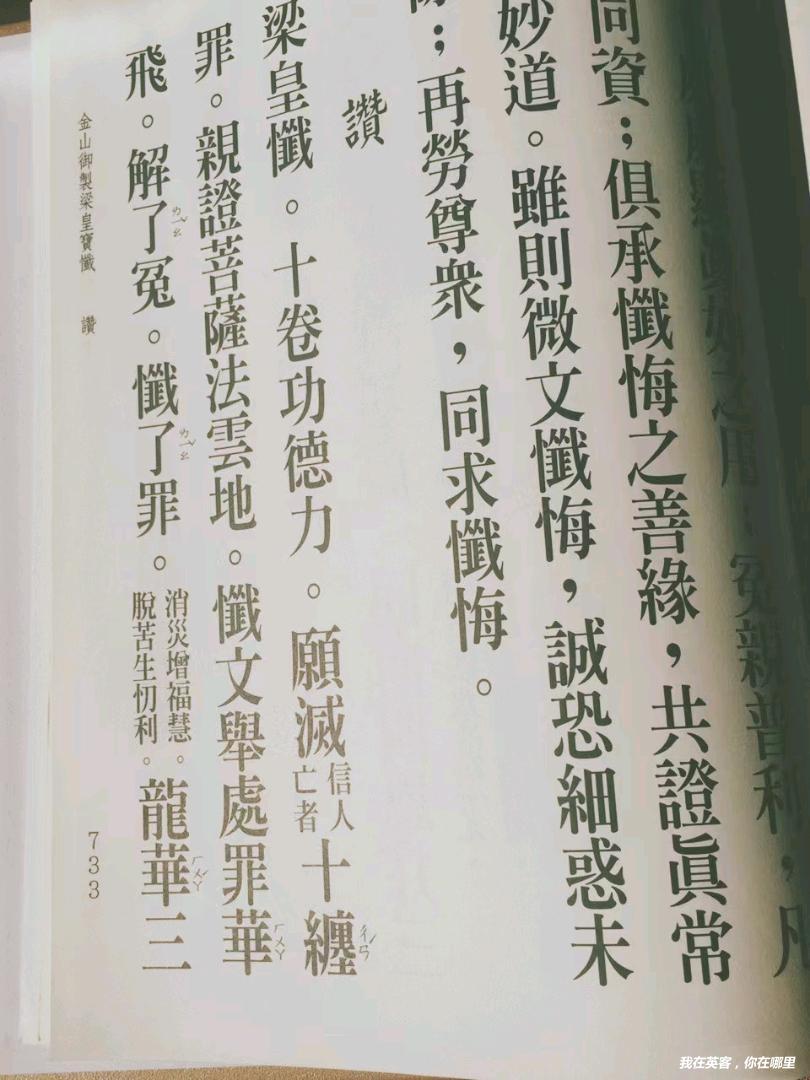 冤親普利，凡
同資；俱承懺悔之善緣，共證眞常
妙道。雖則微文懺悔，誠恐細惑未
；再勞尊衆，同求懺悔。
讚
梁皇懺。十卷功德力。願滅信人亡者十纏ㄔㄢˊ
罪。親證菩薩法雲地。懺文舉處罪華ㄏㄨㄚ
飛。解了ㄌㄧㄠˇ冤。懺了ㄌㄧㄠˇ罪。消災增福慧。脫苦生忉利。龍華ㄏㄨㄚˊ三
金山御製梁皇寶懺 讚
733
我在英客，你在哪里